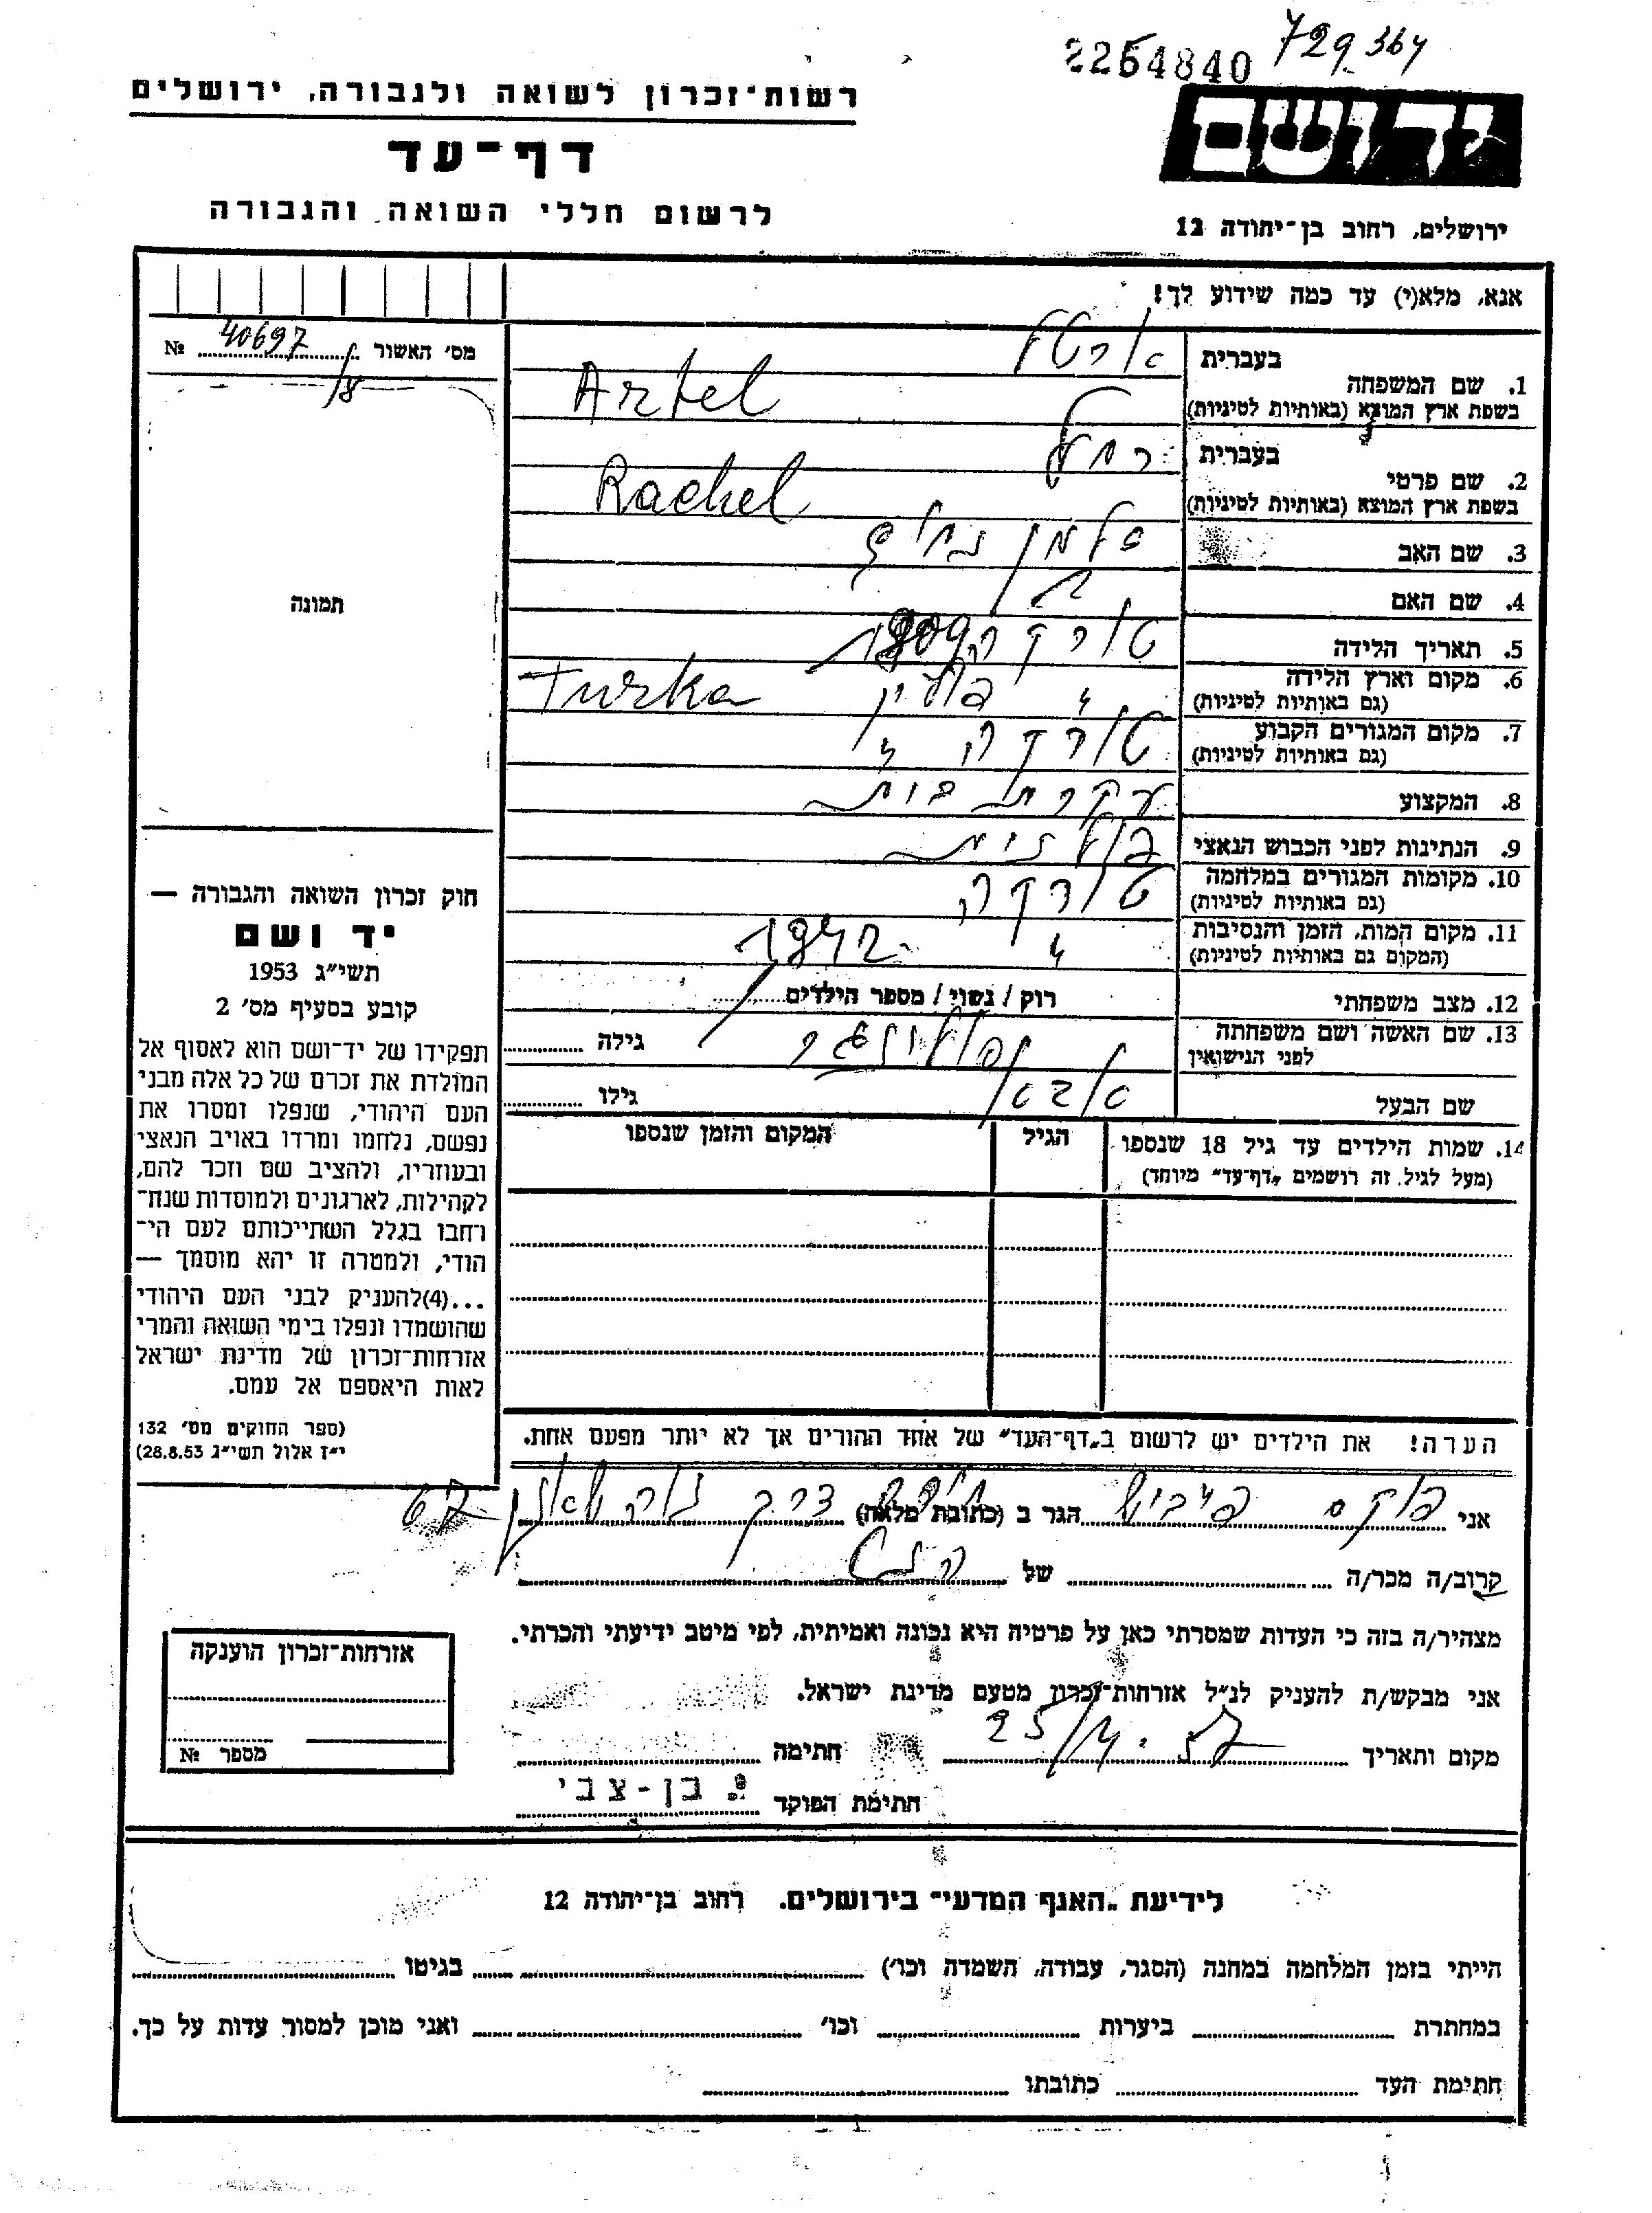 2264840 729 364
רשות־זכרון לשואה ולגבורה, ירושלים
דף־עד
לרשום חללי השואה והגבורה
יד ושם
ירושלים, רחוב בן־יהודה 12
אנא, מלא(י) עד כמה שידוע לך!
מס׳ האשור 40697 №
תמונה
1. שם המשפחה
בעברית ארטל
בשפת ארץ המוצא (באותיות לטיניות) Artel
2. שם פרטי
בעברית רחל
בשפת ארץ המוצא (באותיות לטיניות) Rachel
3. שם האב זלמן
4. שם האם
5. תאריך הלידה טורקה 1909
6. מקום וארץ הלידה
(גם באותיות לטיניות) " פולין Turka
7. מקום המגורים הקבוע
(גם באותיות לטיניות) טורקה "
8. המקצוע עקרת בית
9. הנתינות לפני הכבוש הנאצי פולנית
10. מקומות המגורים במלחמה
(גם באותיות לטיניות) טורקה
11. מקום המות, הזמן והנסיבות
(המקום גם באותיות לטיניות) " 1942
12. מצב משפחתי רוק / נשוי / מספר הילדים
13. שם האשה ושם משפחתה
לפני הנישואין גילה
שם הבעל אבא גילו
14. שמות הילדים עד גיל 18 שנספו
(מעל לגיל זה רושמים „דף־עד״ מיוחד)
הגיל
המקום והזמן שנספו
חוק זכרון השואה והגבורה —
יד ושם
תשי״ג 1953
קובע בסעיף מס׳ 2
תפקידו של יד־ושם הוא לאסוף אל
המולדת את זכרם של כל אלה מבני
העם היהודי, שנפלו ומסרו את
נפשם, נלחמו ומרדו באויב הנאצי
ובעוזריו, ולהציב שם וזכר להם,
לקהילות, לארגונים ולמוסדות שנח־
רחבו בגלל השתייכותם לעם הי־
הודי, ולמטרה זו יהא מוסמך —
...(4)להעניק לבני העם היהודי
שהושמדו ונפלו בימי השואה והמרי
אזרחות־זכרון של מדינת ישראל
לאות היאספם אל עמם.
(ספר החוקים מס׳ 132
י״ז אלול תשי״ג 28.8.53)
הערה! את הילדים יש לרשום ב„דף־העד״ של אחד ההורים אך לא יותר מפעם אחת.
אני פוקס פייביש הגר ב (כתובת מלאה) חיפה דרך 67
קרוב/ה מכר/ה של
מצהיר/ה בזה כי העדות שמסרתי כאן על פרטיה היא נכונה ואמיתית, לפי מיטב ידיעתי והכרתי.
אני מבקש/ת להעניק לנ״ל אזרחות־זכרון מטעם מדינת ישראל.
מקום ותאריך 25/4.57 חתימה
חתימת הפוקד י. בן-צבי
אזרחות־זכרון הוענקה
מספר №
לידיעת „האגף המדעי״ בירושלים. רחוב בן־יהודה 12
הייתי בזמן המלחמה במחנה (הסגר, עבודה, השמדה וכו׳) בגיטו
במחתרת ביערות וכו׳ ואני מוכן למסור עדות על כך.
חתימת העד כתובתו